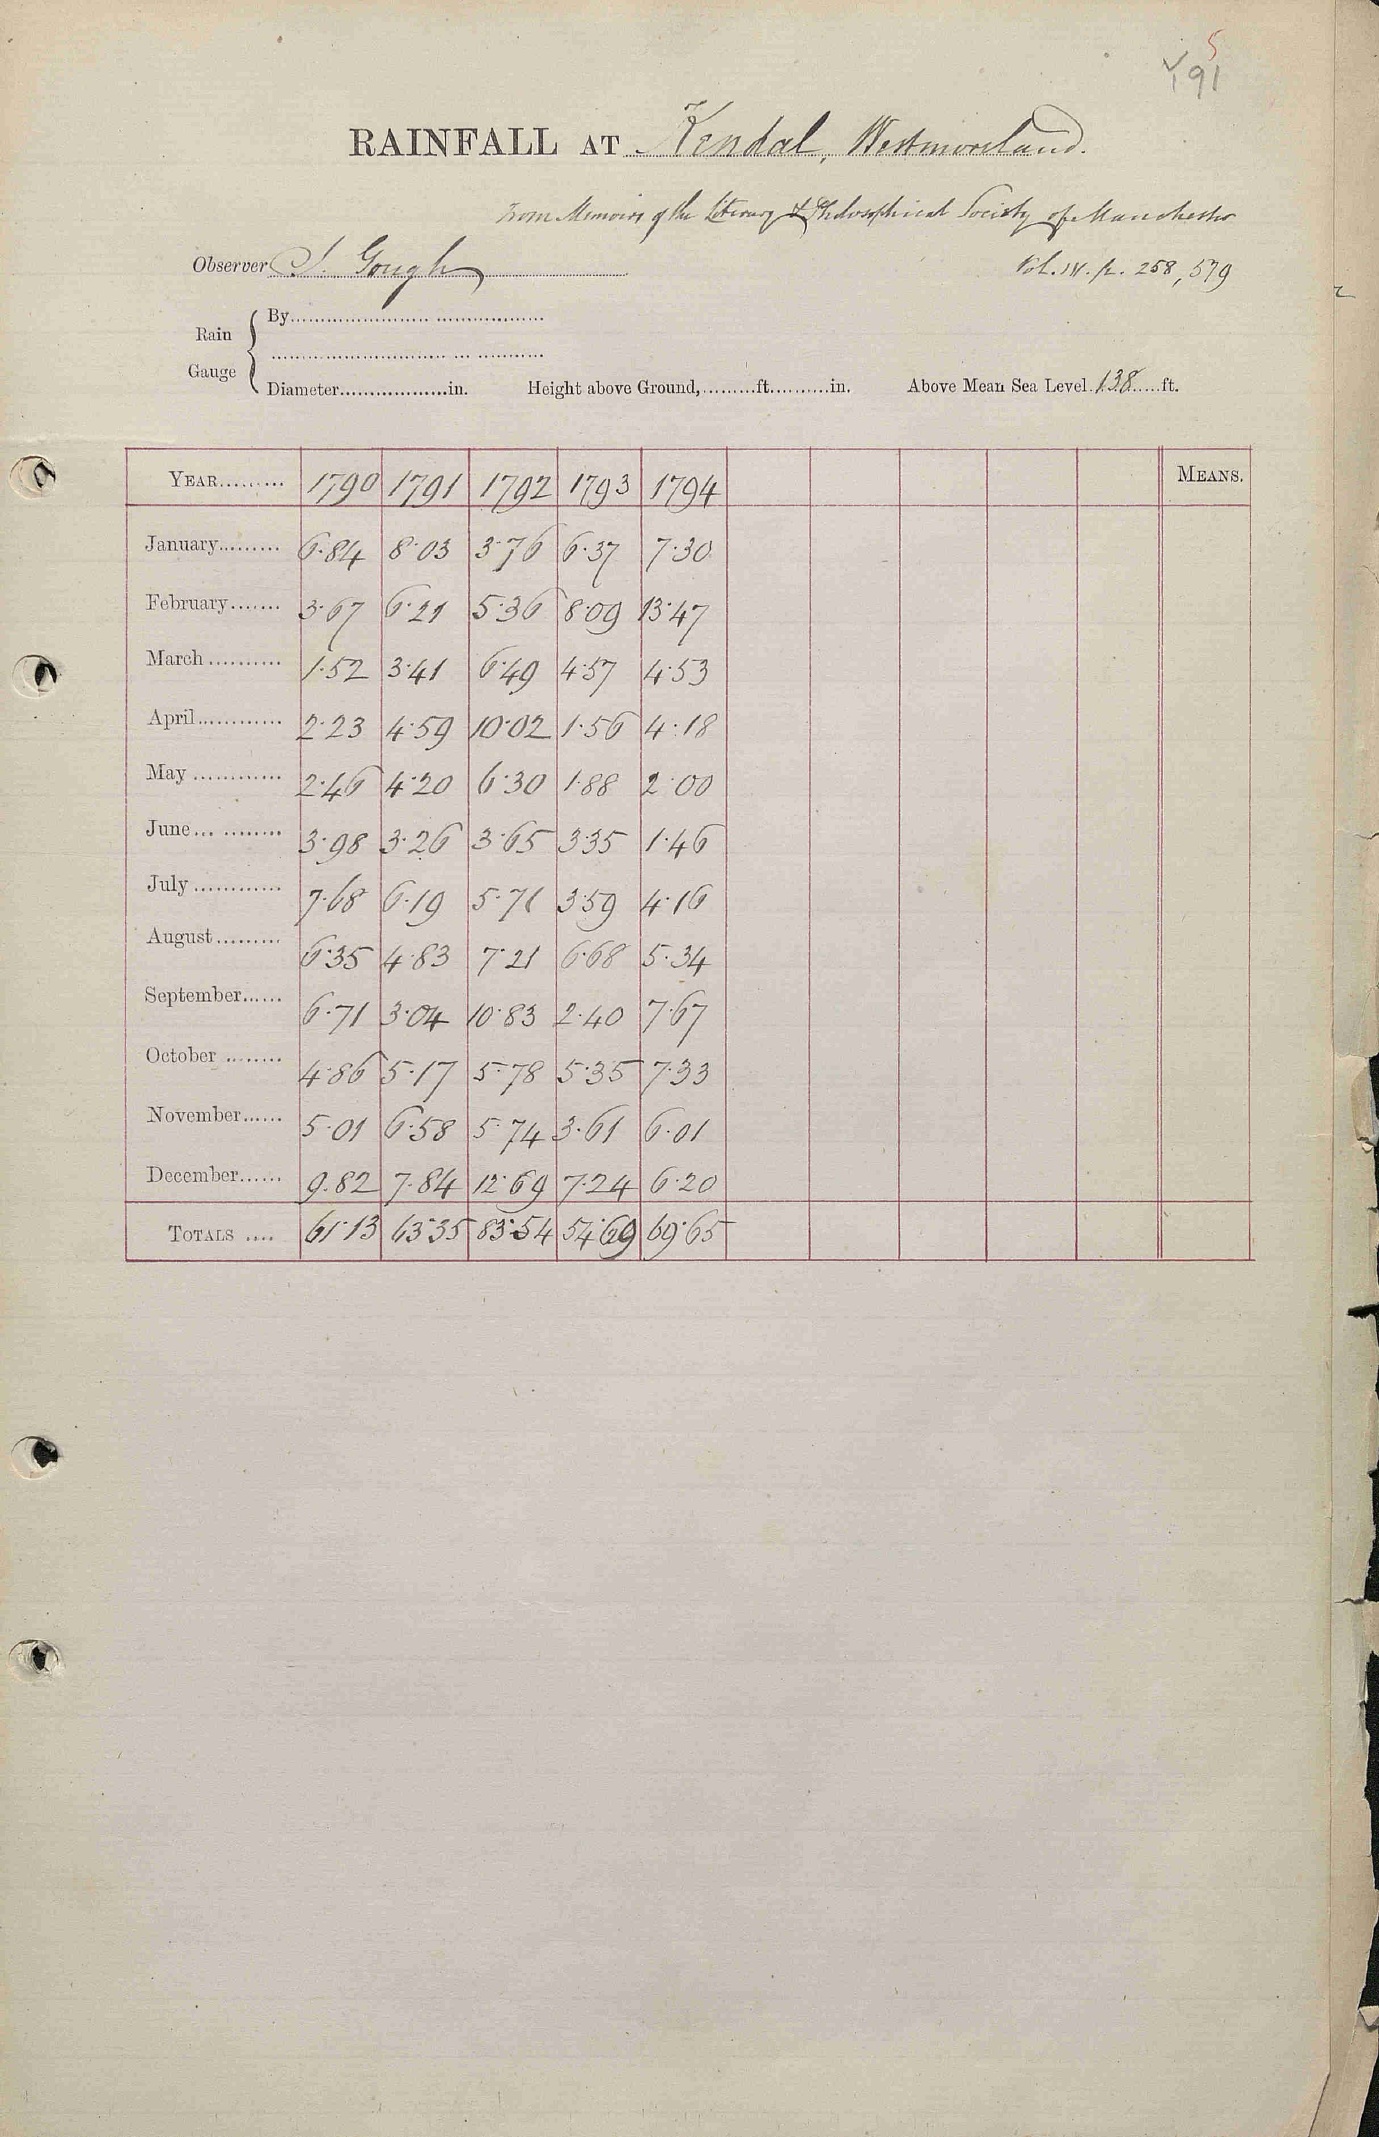 5
191
RAINFALL AT Kendal, Westmoreland.
From Memoirs of the Literary & Philosophical Society of Manchester
Observer J. Gough
Vol. IV. p. 258, 579
Rain Gauge
By
Diameter in. Height above Ground, ft. in. Above Mean Sea Level 138 ft.
YEAR 1790 1791 1792 1793 1794 MEANS.
January 6.84 8.03 3.76 6.37 7.30
February 3.67 6.21 5.36 8.09 13.47
March 1.52 3.41 6.49 4.57 4.53
April 2.23 4.59 10.02 1.56 4.18
May 2.46 4.20 6.30 1.88 2.00
June 3.98 3.26 3.65 3.35 1.46
July 7.68 6.19 5.71 3.59 4.16
August 6.35 4.83 7.21 6.68 5.34
September 6.71 3.04 10.83 2.40 7.67
October 4.86 5.17 5.78 5.35 7.33
November 5.01 6.58 5.74 3.61 6.01
December 9.82 7.84 12.69 7.24 6.20
TOTALS 61.13 63.35 83.54 54.69 69.65